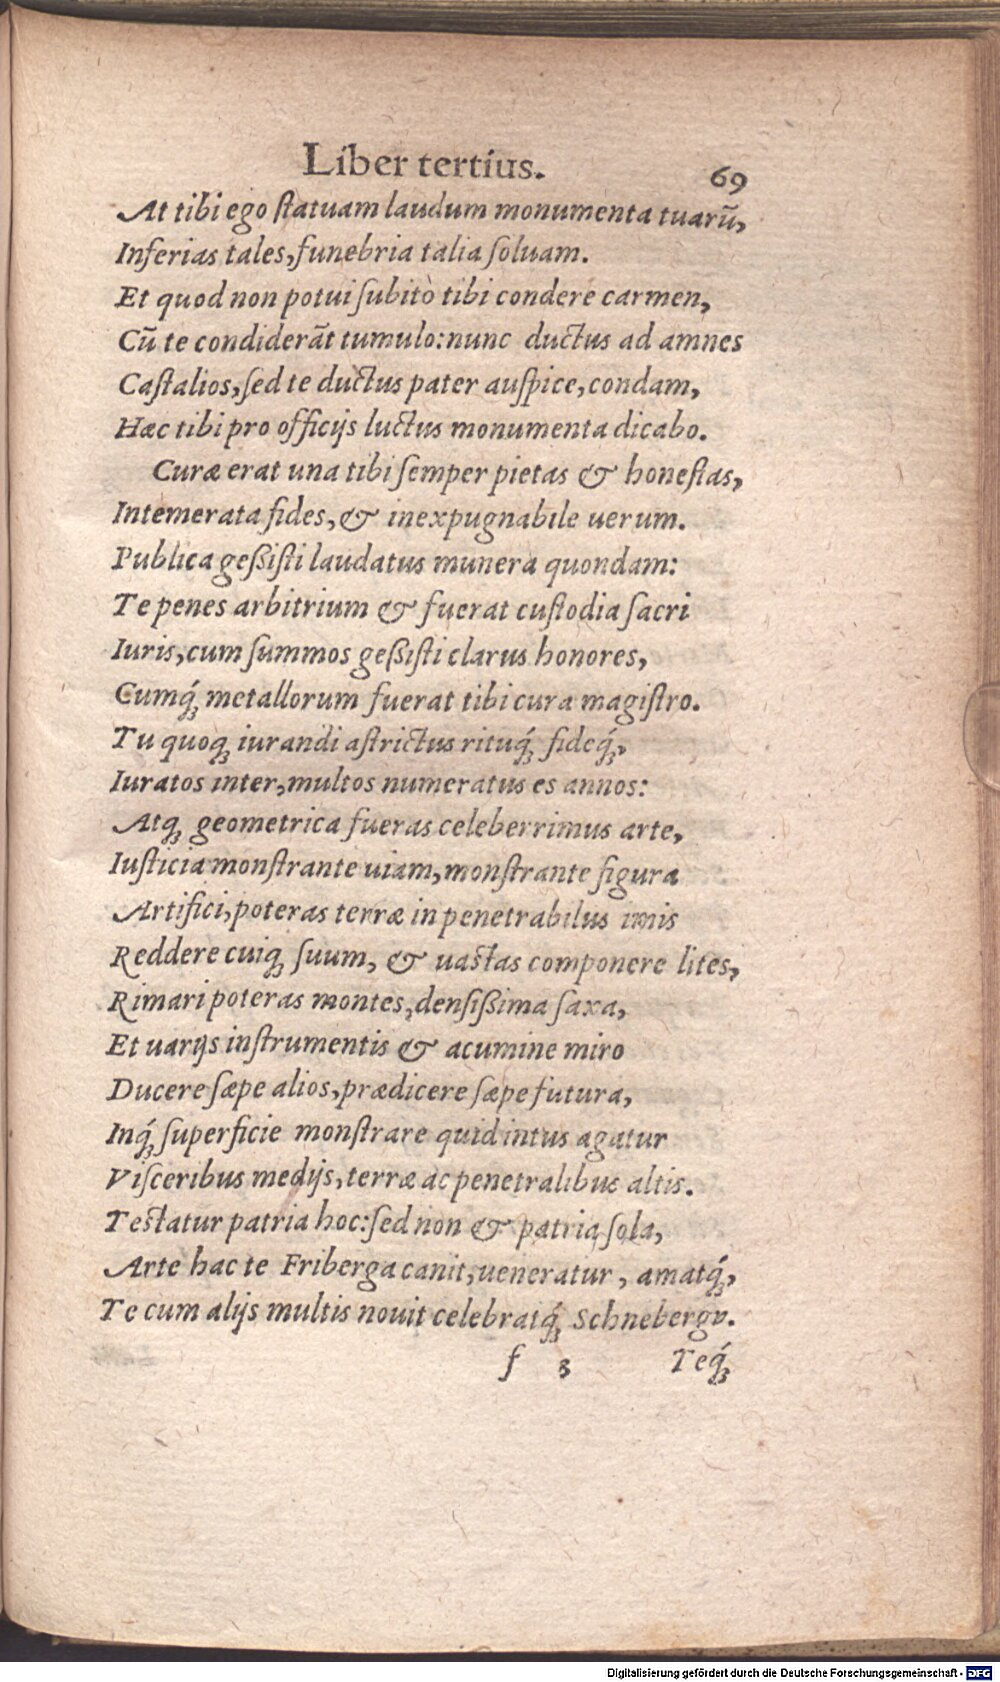 Liber tertius. 69
At tibi ego ſtatuam laudum monumenta tuarũ,
Inferias tales, funebria talia ſoluam.
Et quod non potui ſubitò tibi condere carmen,
Cũ te condiderãt tumulo: nunc ductus ad amnes
Caſtalios, ſed te ductus pater auſpice, condam,
Hæc tibi pro officijs luctus monumenta dicabo.
Curæ erat una tibi ſemper pietas & honeſtas,
Intemerata fides, & inexpugnabile uerum.
Publica geßiſti laudatus munera quondam:
Te penes arbitrium & fuerat cuſtodia ſacri
Iuris, cum ſummos geßiſti clarus honores,
Cumq́ꝫ metallorum fuerat tibi cura magiſtro.
Tu quoqꝫ iurandi aſtrictus rituq́ꝫ fideq́ꝫ,
Iuratos inter, multos numeratus es annos:
Atqꝫ geometrica fueras celeberrimus arte,
Iuſticia monſtrante uiam, monſtrante figura
Artifici, poteras terræ in penetrabilus imis
Reddere cuiqꝫ ſuum, & uaſtas componere lites,
Rimari poteras montes, denſißima ſaxa,
Et uarijs inſtrumentis & acumine miro
Ducere ſæpe alios, prædicere ſæpe futura,
Inq́ꝫ ſuperficie monſtrare quid intus agatur
Viſceribus medijs, terræ ac penetralibus altis.
Teſtatur patria hoc: ſed non & patria ſola,
Arte hac te Friberga canit, ueneratur, amatq́ꝫ,
Te cum alijs multis nouit celebratq́ꝫ Schnebergv.
f 3 Teq́ꝫ
Digitalisierung gefördert durch die Deutsche Forschungsgemeinschaft - DFG